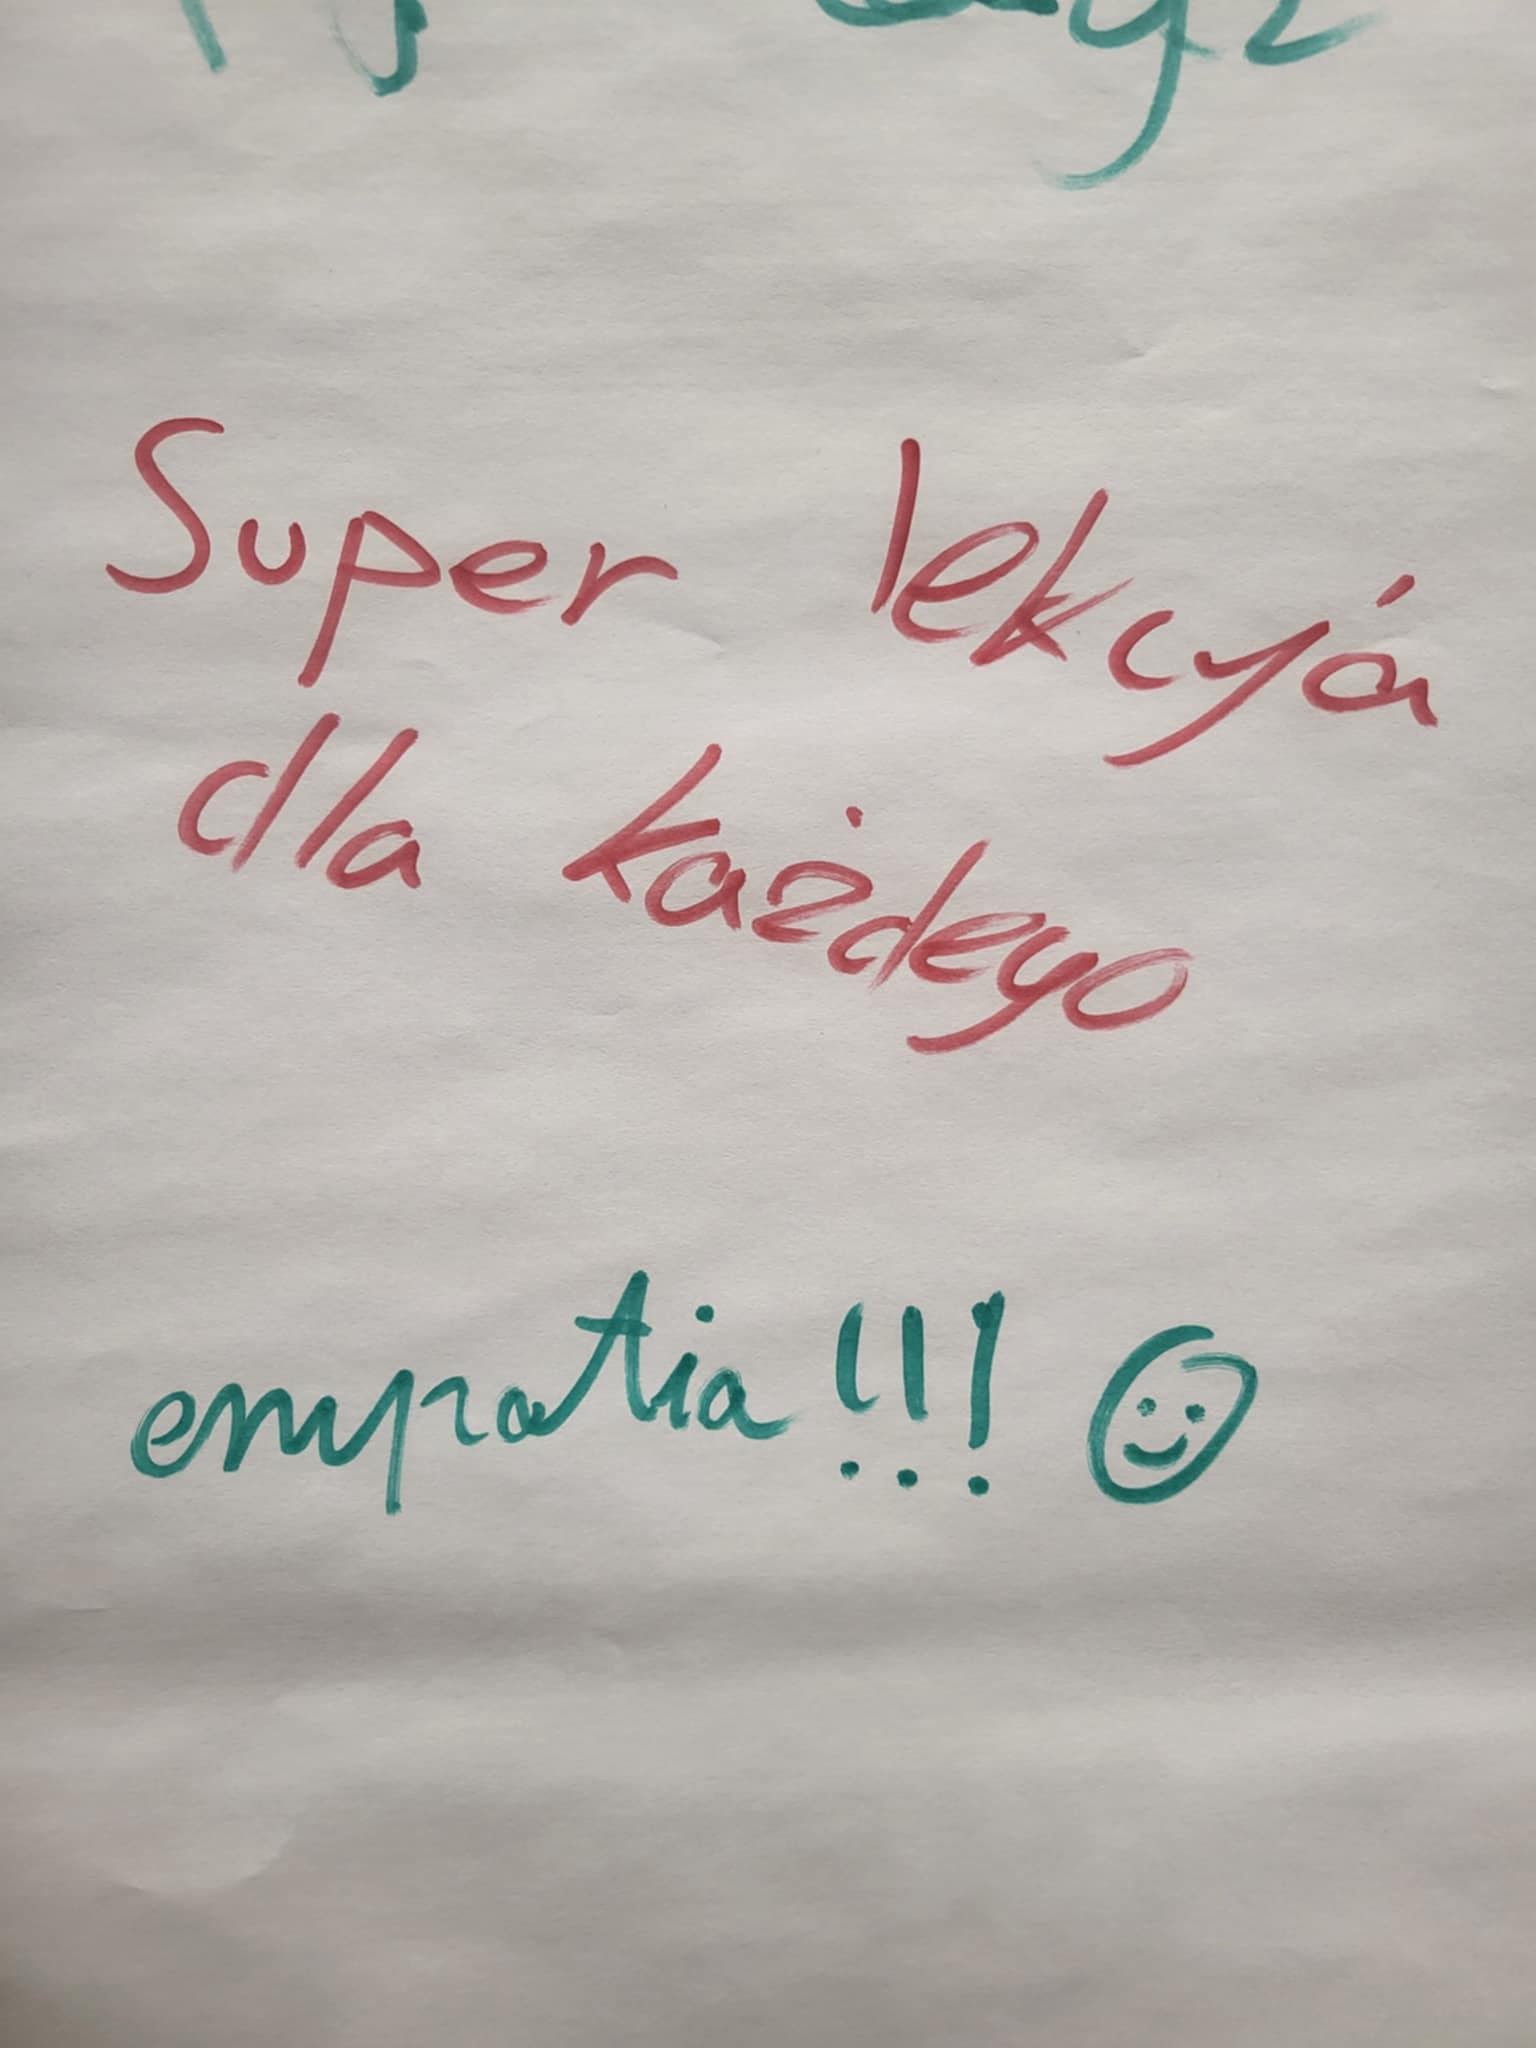 Super lekcja
dla każdego
empatia!!!